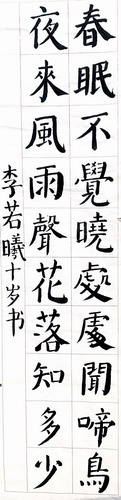 春眠不覺曉處處聞啼鳥
夜來風雨聲花落知多少
李若曦十岁书